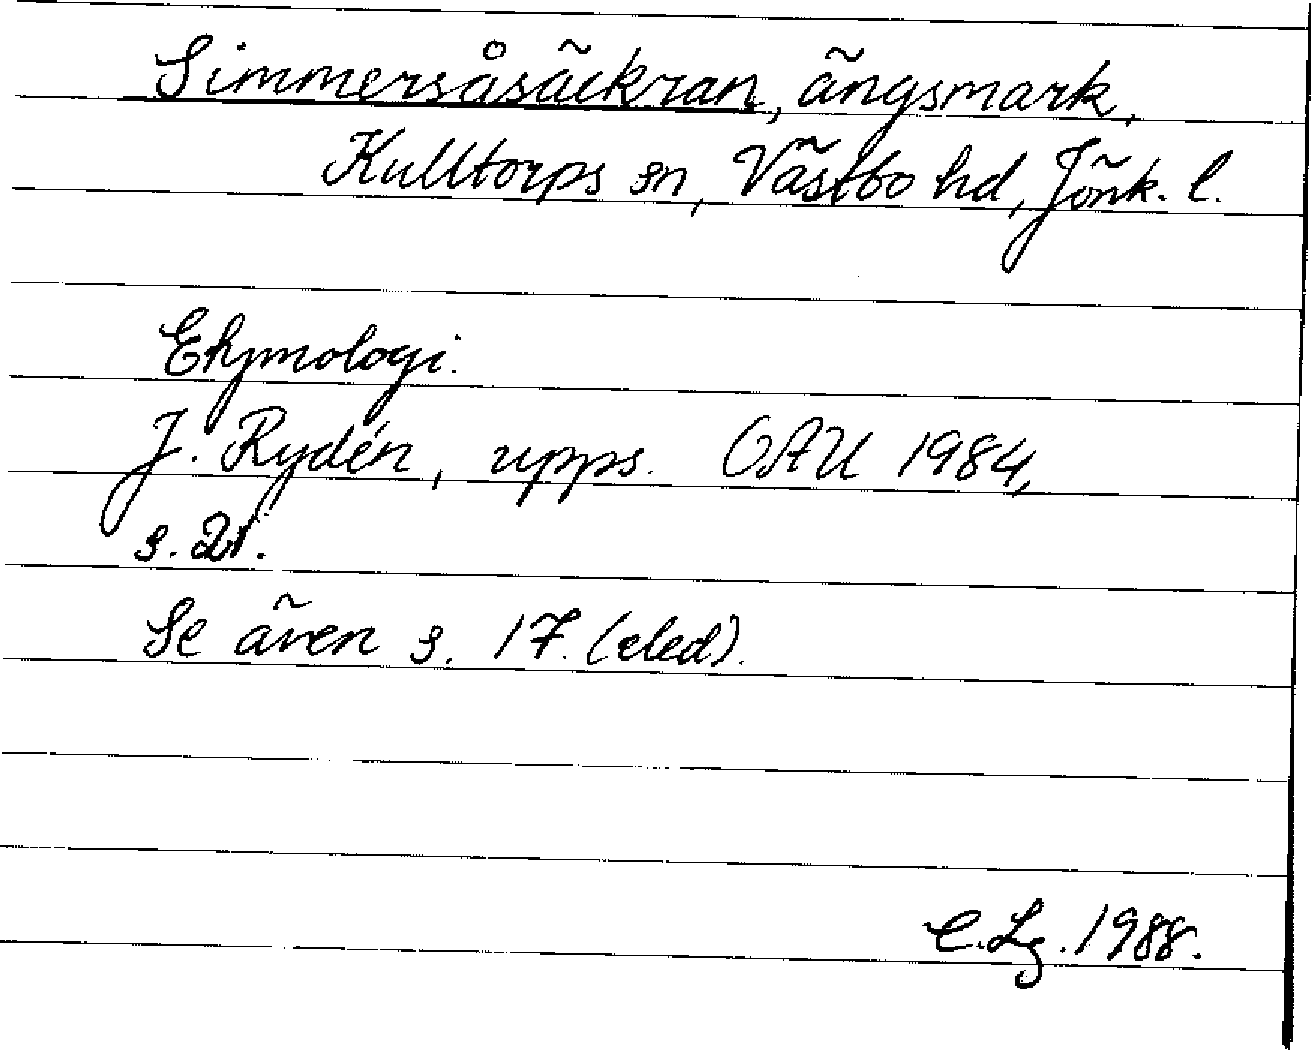 Simmersåsäckran, ängsmark,
Kulltorps sn, Västbo hd, Jönk. l.
Etymologi.
J. Rydén, upps. OAU 1984,
s. 21.
Se även s. 17. (eled).
C. Lg. 1988.